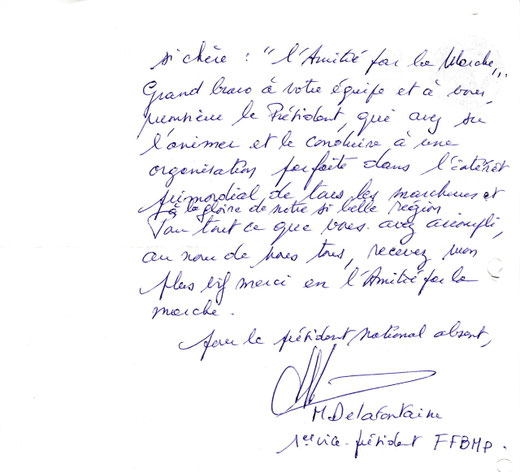 si chère : "l'Amitié par la Marche,,.
Grand bravo à votre équipe et à vous,
monsieur le Président, qui avez su
l'animer et le conduire à une
organisation parfaite dans l'intérêt
primordial de tous les marcheurs et
à la gloire de notre si belle région
Pour tout ce que vous avez accompli,
au nom de nous tous, recevez mon
plus vif merci en l'Amitié par la
marche.
Pour le président national absent,
M Delafontaine
1er vice-président FFBMP.